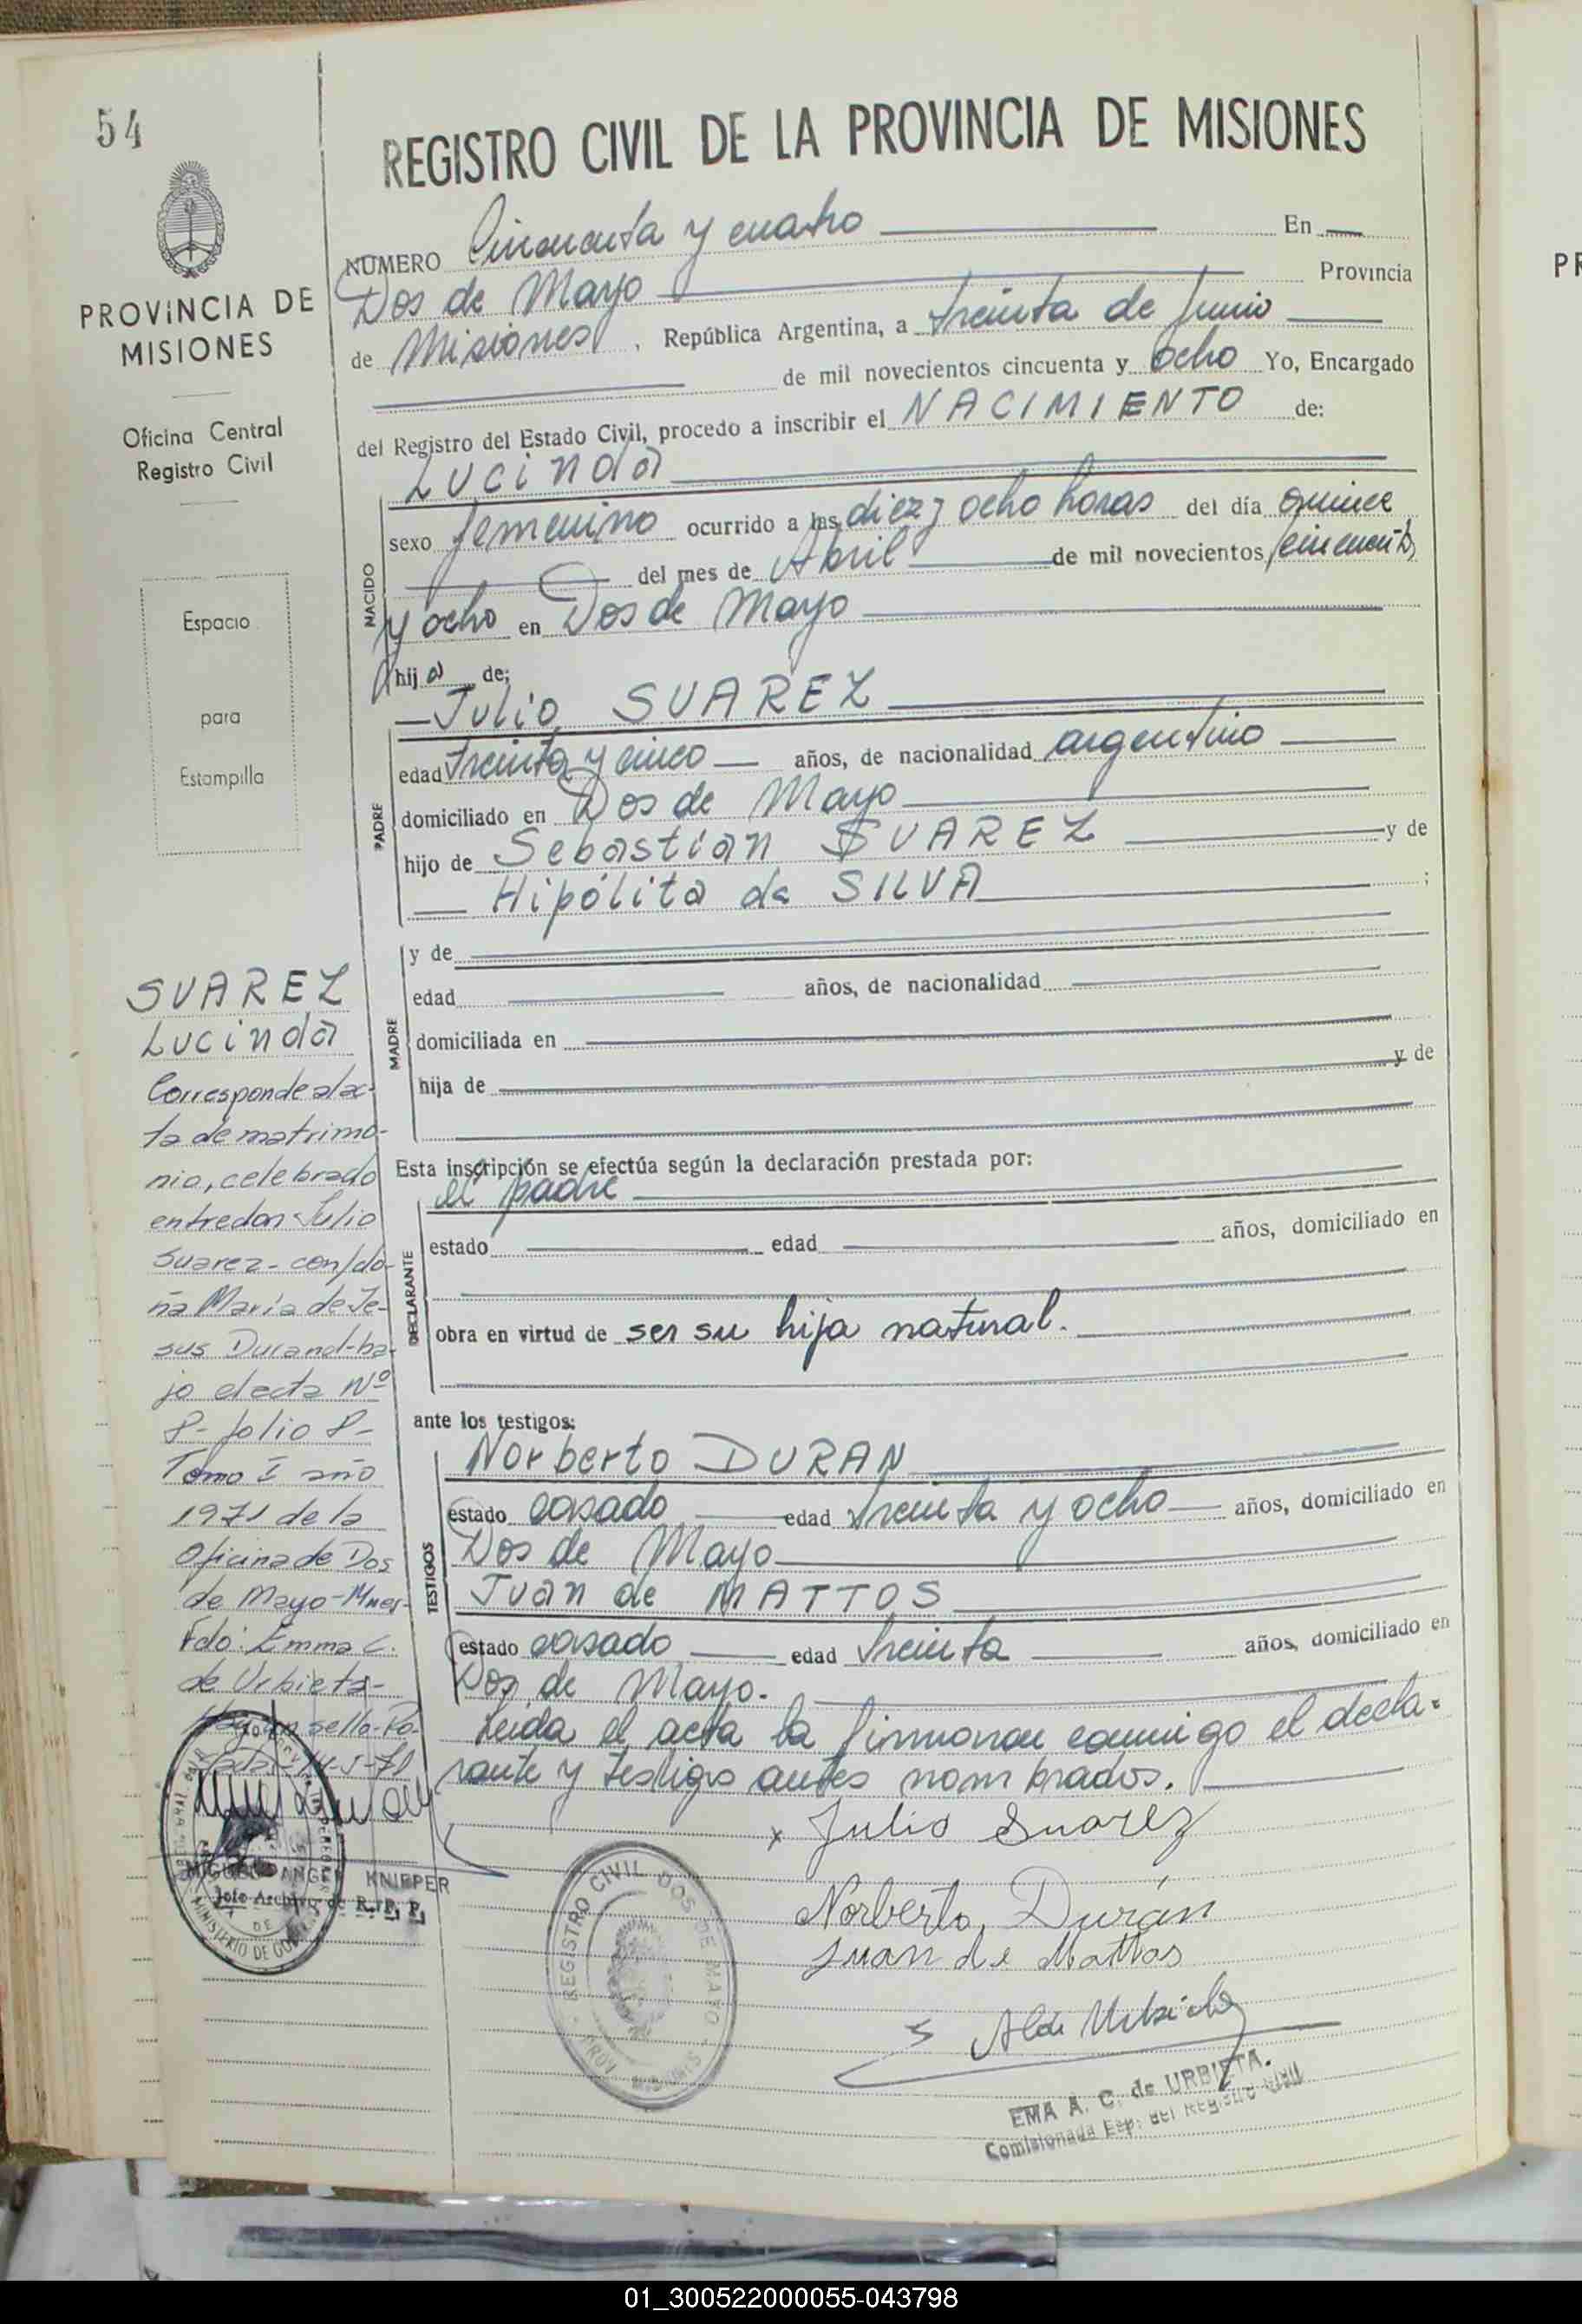 54
REGISTRO CIVIL DE LA PROVINCIA DE MISIONES
PROVINCIA DE
MISIONES
Oficina Central
Registro Civil
Espacio
para
Estampilla
NUMERO Cincuenta y cuatro En
Dos de Mayo Provincia
de Misiones, República Argentina, a treinta de Junio
de mil novecientos cincuenta y ocho Yo, Encargado
del Registro del Estado Civil, procedo a inscribir el NACIMIENTO de:
Lucinda
NACIDO
sexo femenino ocurrido a las diez y ocho horas del día quince
del mes de Abril de mil novecientos cincuenta
y ocho en Dos de Mayo
hija de:
Julio SUAREZ
PADRE
edad treinta y cinco años, de nacionalidad argentino
domiciliado en Dos de Mayo
hijo de Sebastián SUAREZ y de
Hipólita da SILVA ;
MADRE
y de
edad años, de nacionalidad
domiciliada en
hija de y de
Esta inscripción se efectúa según la declaración prestada por:
el padre
DECLARANTE
estado edad años, domiciliado en
obra en virtud de ser su hija natural.
ante los testigos:
TESTIGOS
Norberto DURAN
estado casado edad treinta y ocho años, domiciliado en
Dos de Mayo
Juan de MATTOS
estado casado edad treinta años, domiciliado en
Dos de Mayo.
Leida el acta la firmaron conmigo el decla-
rante y testigos antes nombrados.
x Julio Suarez
Norberto Durán
Juan de Mattos
EMA A. C. de URBIETA.
Comisionada Esp. del Registro Civil
REGISTRO CIVIL DOS DE MAYO
PROV. MISIONES
SUAREZ
Lucinda
Corresponde al ac-
ta de matrimo-
nio, celebrado
entre don Julio
Suarez - con/do-
ña María de Je-
sus Durand - ba-
jo el acta Nº
8 - folio 8 -
Tomo I año
1971 de la
Oficina de Dos
de Mayo - Mnes-
Fdo: Emma C.
de Urbieta -
Hay un sello - Po-
sadas - 14-5-71
MIGUEL ANGEL KNIEPER
Jefe Archivo de R. P. P.
MINISTERIO DE GOBIERNO
PR
01_300522000055-043798